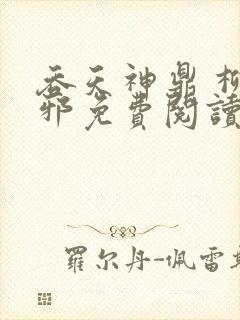 吞天神鼎
邪免費閱讀
羅尔丹-佩雷